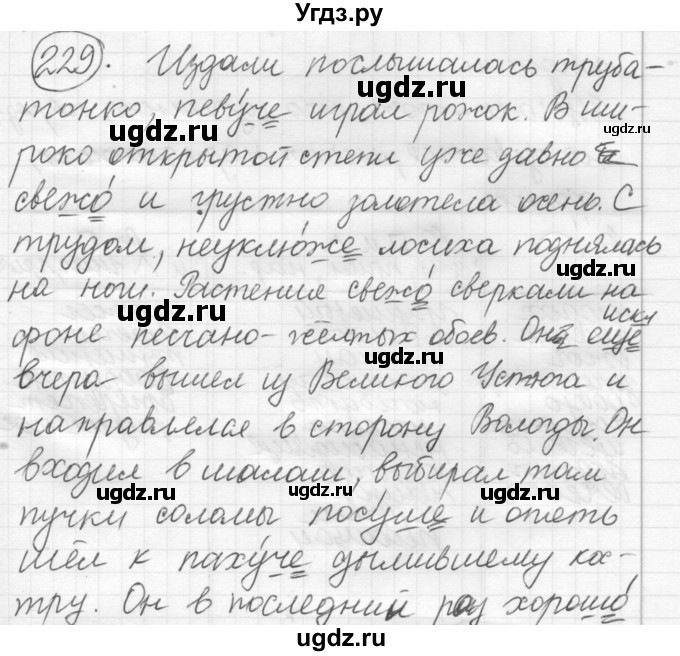 Угдз.ру
229. Издали послышалась труба-
тонко, певуче играл рожок. В ши-
роко открытой степи уже давно
свежо и грустно золотела осень. С
трудом, неуклюже лосиха поднялась
на ноги. Растения свежо сверкали на
фоне песчано-жёлтых обоев. Он еще
искл
вчера вышел из Великого Устюга и
направился в сторону Вологды. Он
входил в шалаш, выбирал там
пучки соломы посуше и опять
шёл к пахуче дымившему ко-
тру. Он в последний раз хорошо
ugdz.ru
ugdz.ru
ugdz.ru
ugdz.ru
ugdz.ru
ugdz.ru
ugdz.ru
ugdz.ru
ugdz.ru
ugdz.ru
ugdz.ru
ugdz.ru
ugdz.ru
ugdz.ru